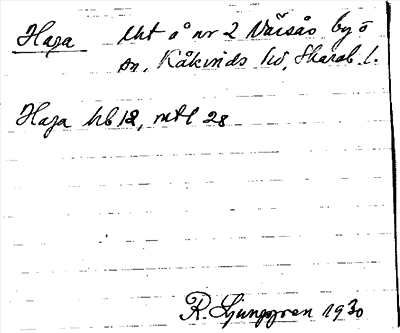 Haga lht å nr 2 Värsås by ö
sn, Kåkinds hd, Skarab. l.
Haga hb 12, mtl 28
R. Ljunggren 1930